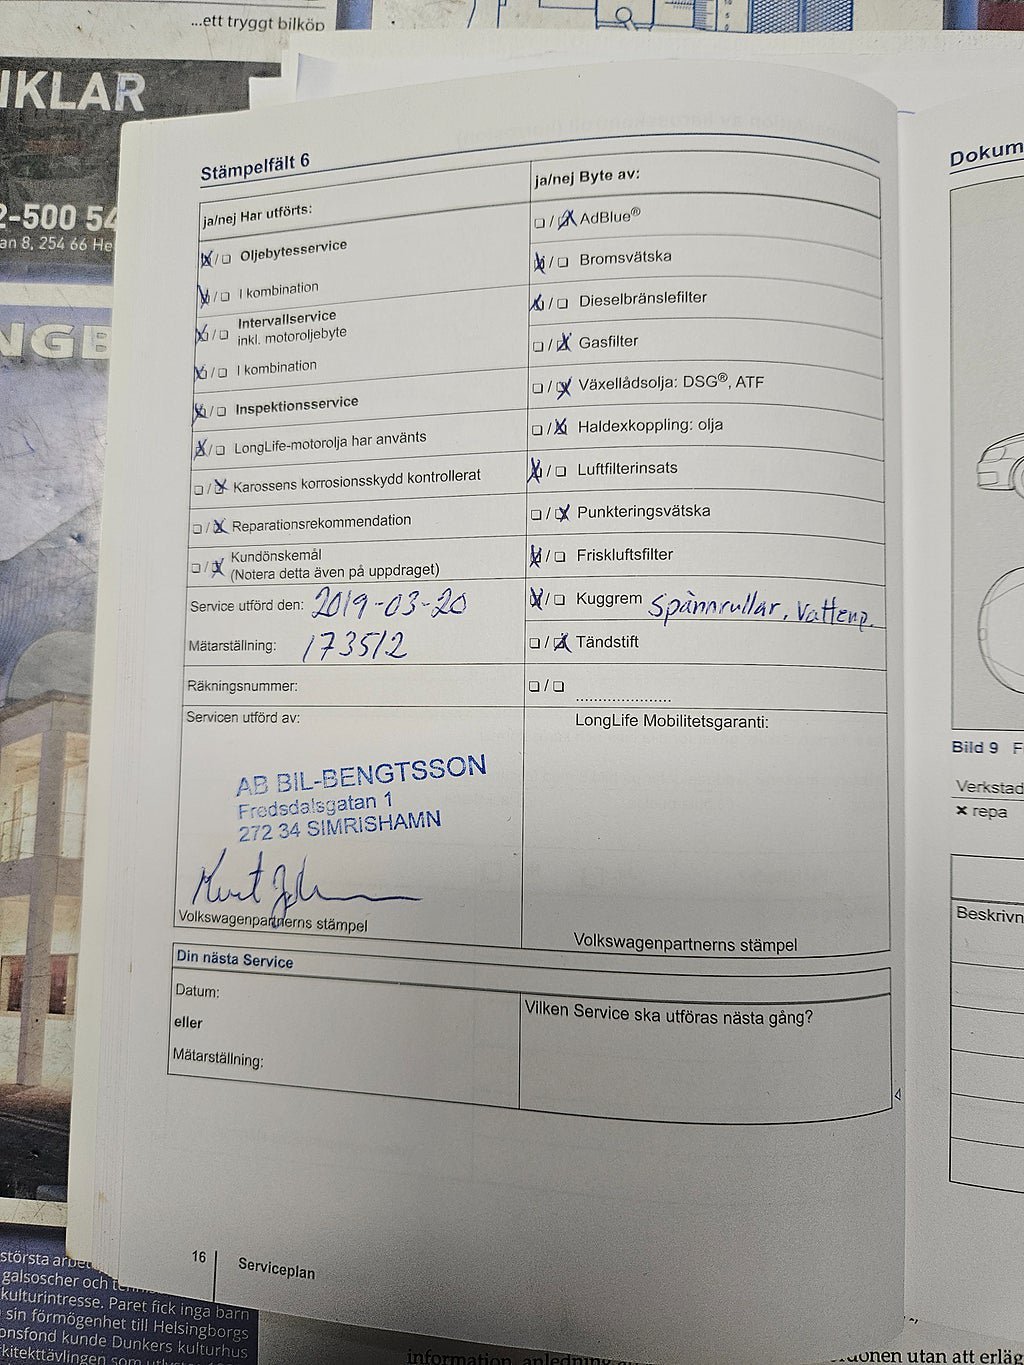 ...ett tryggt bilköp
IKLAR
2-500 54
an 8, 254 66 He
NGB
Stämpelfält 6
ja/nej Har utförts:
☒/☐ Oljebytesservice
☒/☐ I kombination
☒/☐ Intervallservice
inkl. motoroljebyte
☒/☐ I kombination
☒/☐ Inspektionsservice
☒/☐ LongLife-motorolja har använts
☐/☒ Karossens korrosionsskydd kontrollerat
☐/☒ Reparationsrekommendation
☐/☒ Kundönskemål
(Notera detta även på uppdraget)
Service utförd den: 2019-03-20
Mätarställning: 173512
Räkningsnummer:
Servicen utförd av:
AB BIL-BENGTSSON
Fredsdalsgatan 1
272 34 SIMRISHAMN
Volkswagenpartnerns stämpel
ja/nej Byte av:
☐/☒ AdBlue®
☒/☐ Bromsvätska
☒/☐ Dieselbränslefilter
☐/☒ Gasfilter
☐/☒ Växellådsolja: DSG®, ATF
☐/☒ Haldexkoppling: olja
☒/☐ Luftfilterinsats
☐/☒ Punkteringsvätska
☒/☐ Friskluftsfilter
☒/☐ Kuggrem Spännrullar, Vattenp.
☐/☒ Tändstift
☐/☐ .....................
LongLife Mobilitetsgaranti:
Volkswagenpartnerns stämpel
Din nästa Service
Datum:
eller
Mätarställning:
Vilken Service ska utföras nästa gång?
16 Serviceplan
Dokum
Bild 9 F
Verkstad
× repa
Beskrivn
största arbe
galsoscher och
kulturintresse. Paret fick inga barn
sin förmögenhet till Helsingborgs
onsfond kunde Dunkers kulturhus
onen utan att erläg